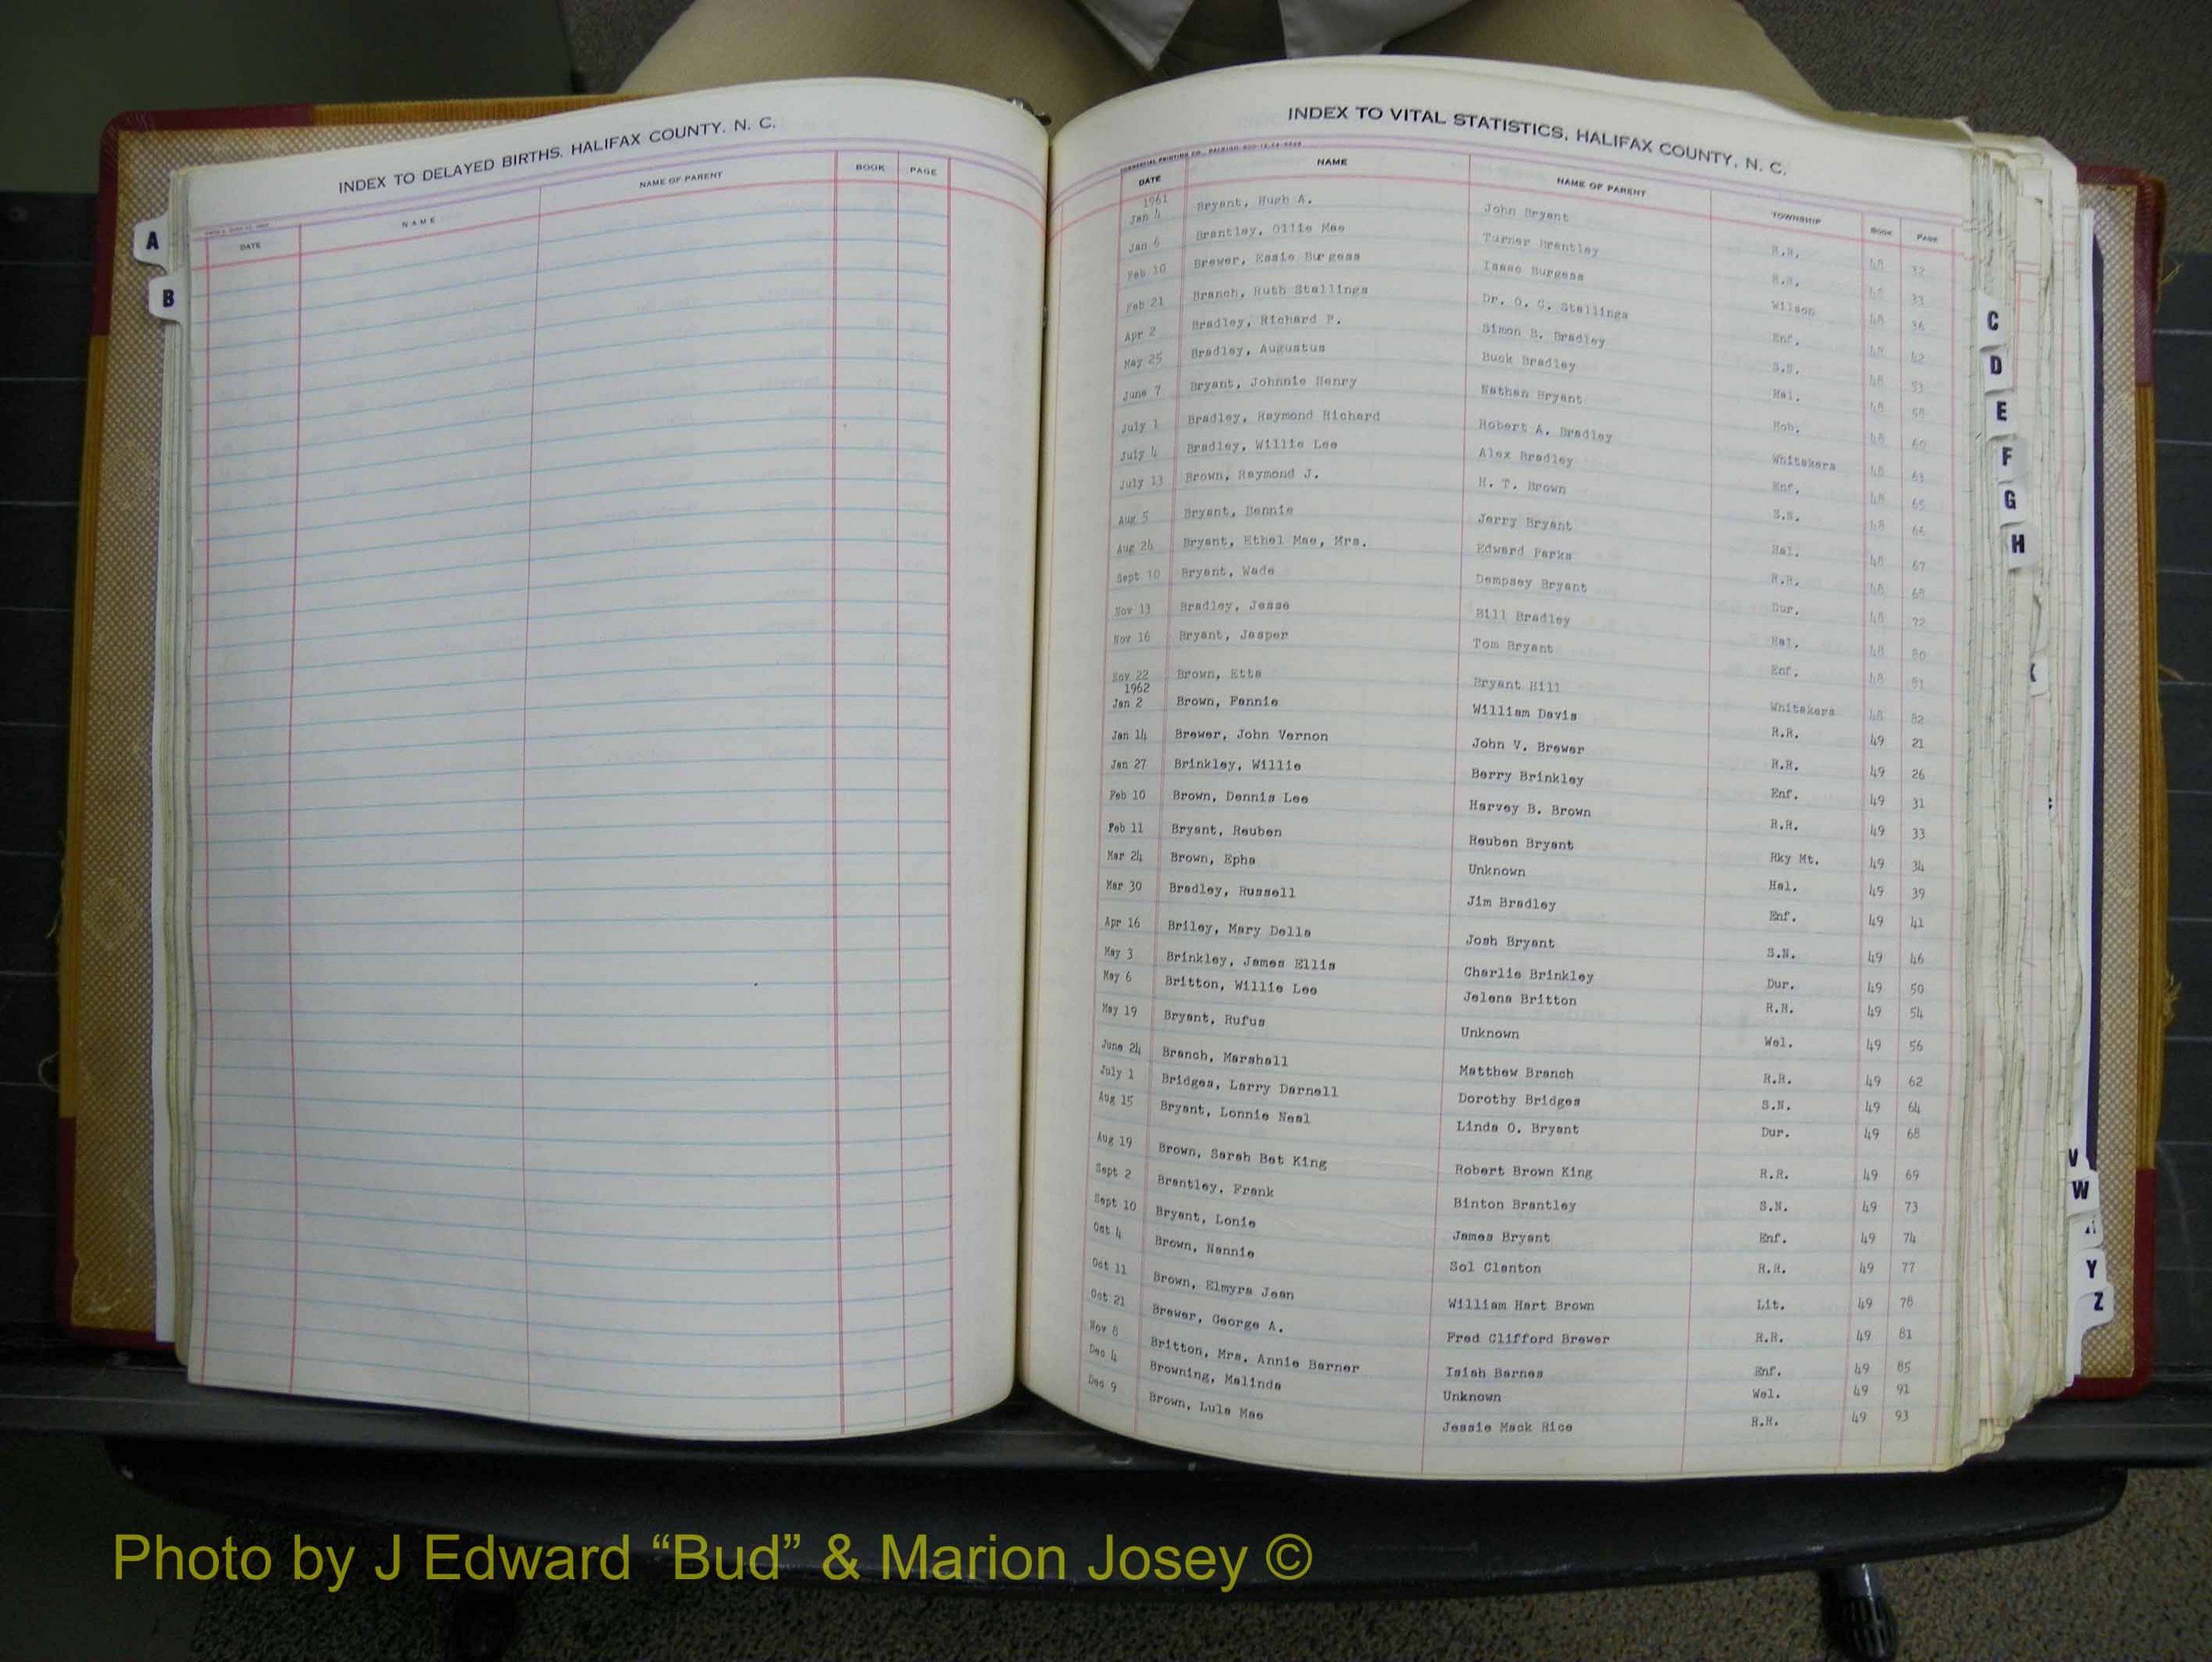 INDEX TO DELAYED BIRTHS, HALIFAX COUNTY, N. C.
DATE NAME NAME OF PARENT BOOK PAGE
A
B
INDEX TO VITAL STATISTICS, HALIFAX COUNTY, N. C.
DATE NAME NAME OF PARENT TOWNSHIP BOOK PAGE
1961
Jan 4 Bryant, Hugh A. John Bryant R.R. 48 32
Jan 6 Brantley, Ollie Mae Turner Brantley R.R. 48 33
Feb 10 Brewer, Essie Burgess Isaac Burgess Wilson 48 36
Feb 21 Branch, Ruth Stallings Dr. O. C. Stallings Enf. 48 42
Apr 2 Bradley, Richard P. Simon B. Bradley S.N. 48 53
May 25 Bradley, Augustus Buck Bradley Hal. 48 58
June 7 Bryant, Johnnie Henry Nathan Bryant Rob. 48 60
July 1 Bradley, Raymond Richard Robert A. Bradley Whitakers 48 63
July 4 Bradley, Willie Lee Alex Bradley Enf. 48 65
July 13 Brown, Raymond J. H. T. Brown S.N. 48 66
Aug 5 Bryant, Bennie Jerry Bryant Hal. 48 67
Aug 24 Bryant, Ethel Mae, Mrs. Edward Parks R.R. 48 68
Sept 10 Bryant, Wade Dempsey Bryant Dur. 48 72
Nov 13 Bradley, Jesse Bill Bradley Hal. 48 80
Nov 16 Bryant, Jasper Tom Bryant Enf. 48 81
Nov 22 Brown, Etta Bryant Hill Whitakers 48 82
1962
Jan 2 Brown, Fannie William Davis R.R. 49 21
Jan 14 Brewer, John Vernon John V. Brewer R.R. 49 26
Jan 27 Brinkley, Willie Berry Brinkley Enf. 49 31
Feb 10 Brown, Dennis Lee Harvey B. Brown R.R. 49 33
Feb 11 Bryant, Reuben Reuben Bryant Rky Mt. 49 34
Mar 24 Brown, Epha Unknown Hal. 49 39
Mar 30 Bradley, Russell Jim Bradley Enf. 49 41
Apr 16 Briley, Mary Della Josh Bryant S.N. 49 46
May 3 Brinkley, James Ellis Charlie Brinkley Dur. 49 50
May 6 Britton, Willie Lee Jelena Britton R.R. 49 54
May 19 Bryant, Rufus Unknown Wel. 49 56
June 24 Branch, Marshall Matthew Branch R.R. 49 62
July 1 Bridges, Larry Darnell Dorothy Bridges S.N. 49 64
Aug 15 Bryant, Lonnie Neal Linda O. Bryant Dur. 49 68
Aug 19 Brown, Sarah Bet King Robert Brown King R.R. 49 69
Sept 2 Brantley, Frank Binton Brantley S.N. 49 73
Sept 10 Bryant, Lonie James Bryant Enf. 49 74
Oct 4 Brown, Nannie Sol Clanton R.R. 49 77
Oct 11 Brown, Elmyra Jean William Hart Brown Lit. 49 78
Oct 21 Brewer, George A. Fred Clifford Brewer R.R. 49 81
Nov 8 Britton, Mrs. Annie Barner Isiah Barnes Enf. 49 85
Dec 4 Browning, Malinda Unknown Wel. 49 91
Dec 9 Brown, Lula Mae Jessie Mack Rice R.R. 49 93
C
D
E
F
G
H
V
W
Y
Z
Photo by J Edward “Bud” & Marion Josey ©